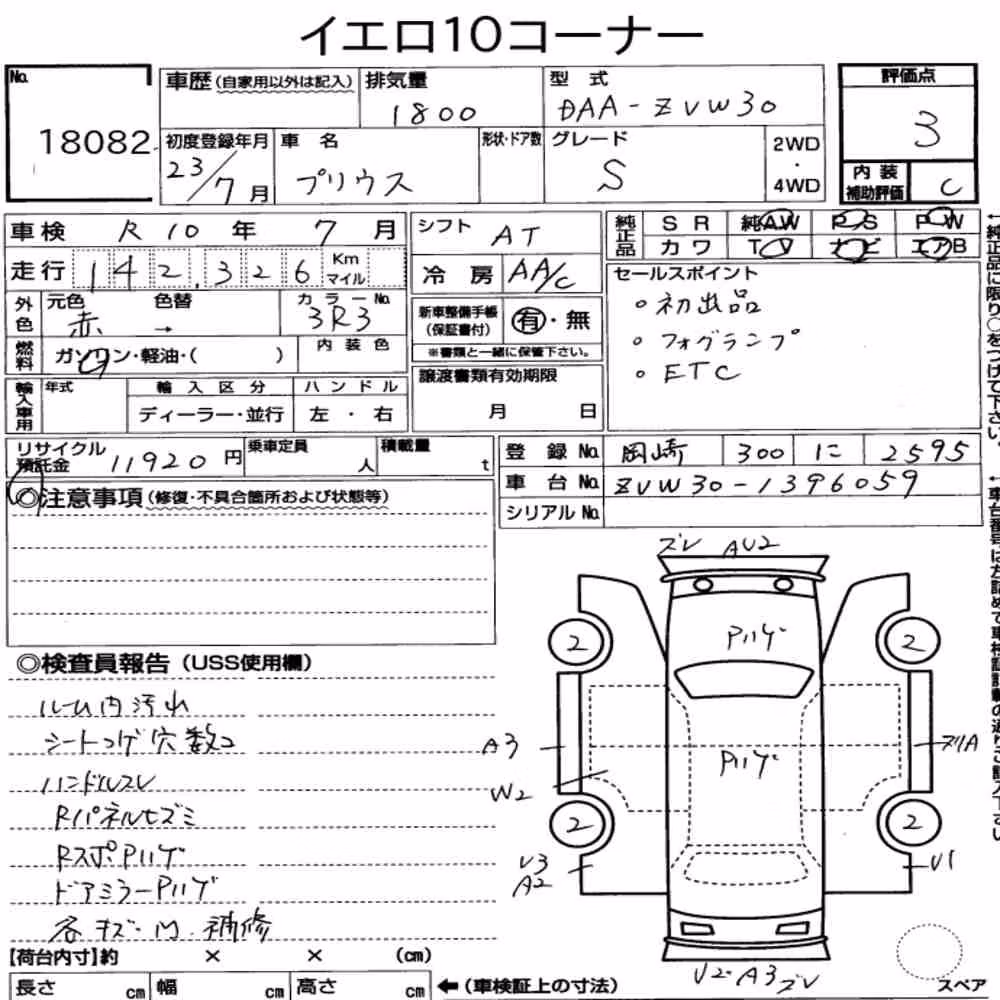 イエロ10コーナー
No. 18082
車歴(自家用以外は記入)
排気量 1800
型式 DAA-ZVW30
評価点 3
内装補助評価 C
初度登録年月 23/7月
車名 プリウス
形状・ドア数
グレード S
2WD・4WD
車検 R10年 7月
シフト AT
純正品 SR 純AW PS PW
カワ TV ナビ エアB
走行 142,326 Km マイル
冷房 AA/C
セールスポイント
・初出品
・フォグランプ
・ETC
外色 元色 赤 → 色替
カラーNo. 3R3
新車整備手帳(保証書付) 有・無
※書類と一緒に保管下さい。
燃料 ガソリン・軽油・( )
内装色
輸入車用 年式 輸入区分 ハンドル
ディーラー・並行 左・右
譲渡書類有効期限
月 日
リサイクル預託金 11920円
乗車定員 人
積載量 t
登録No. 岡崎 300 に 2595
車台No. ZVW30-1396059
シリアルNo.
◎注意事項(修復・不具合箇所および状態等)
◎検査員報告(USS使用欄)
ルーム内汚れ
シートコゲ穴数コ
ハンドルスレ
Rパネルヒズミ
RスポPハゲ
ドアミラーPハゲ
各キズ・凹・補修
ズレ AU2
Pハゲ
2
2
A3
Pハゲ
ズリA
W2
2
2
U3
A2
U1
U2・A3 ズレ
スペア
【荷台内寸】約 × × (cm)
長さ cm 幅 cm 高さ cm ←(車検証上の寸法)
←純正品に限り○をつけて下さい。